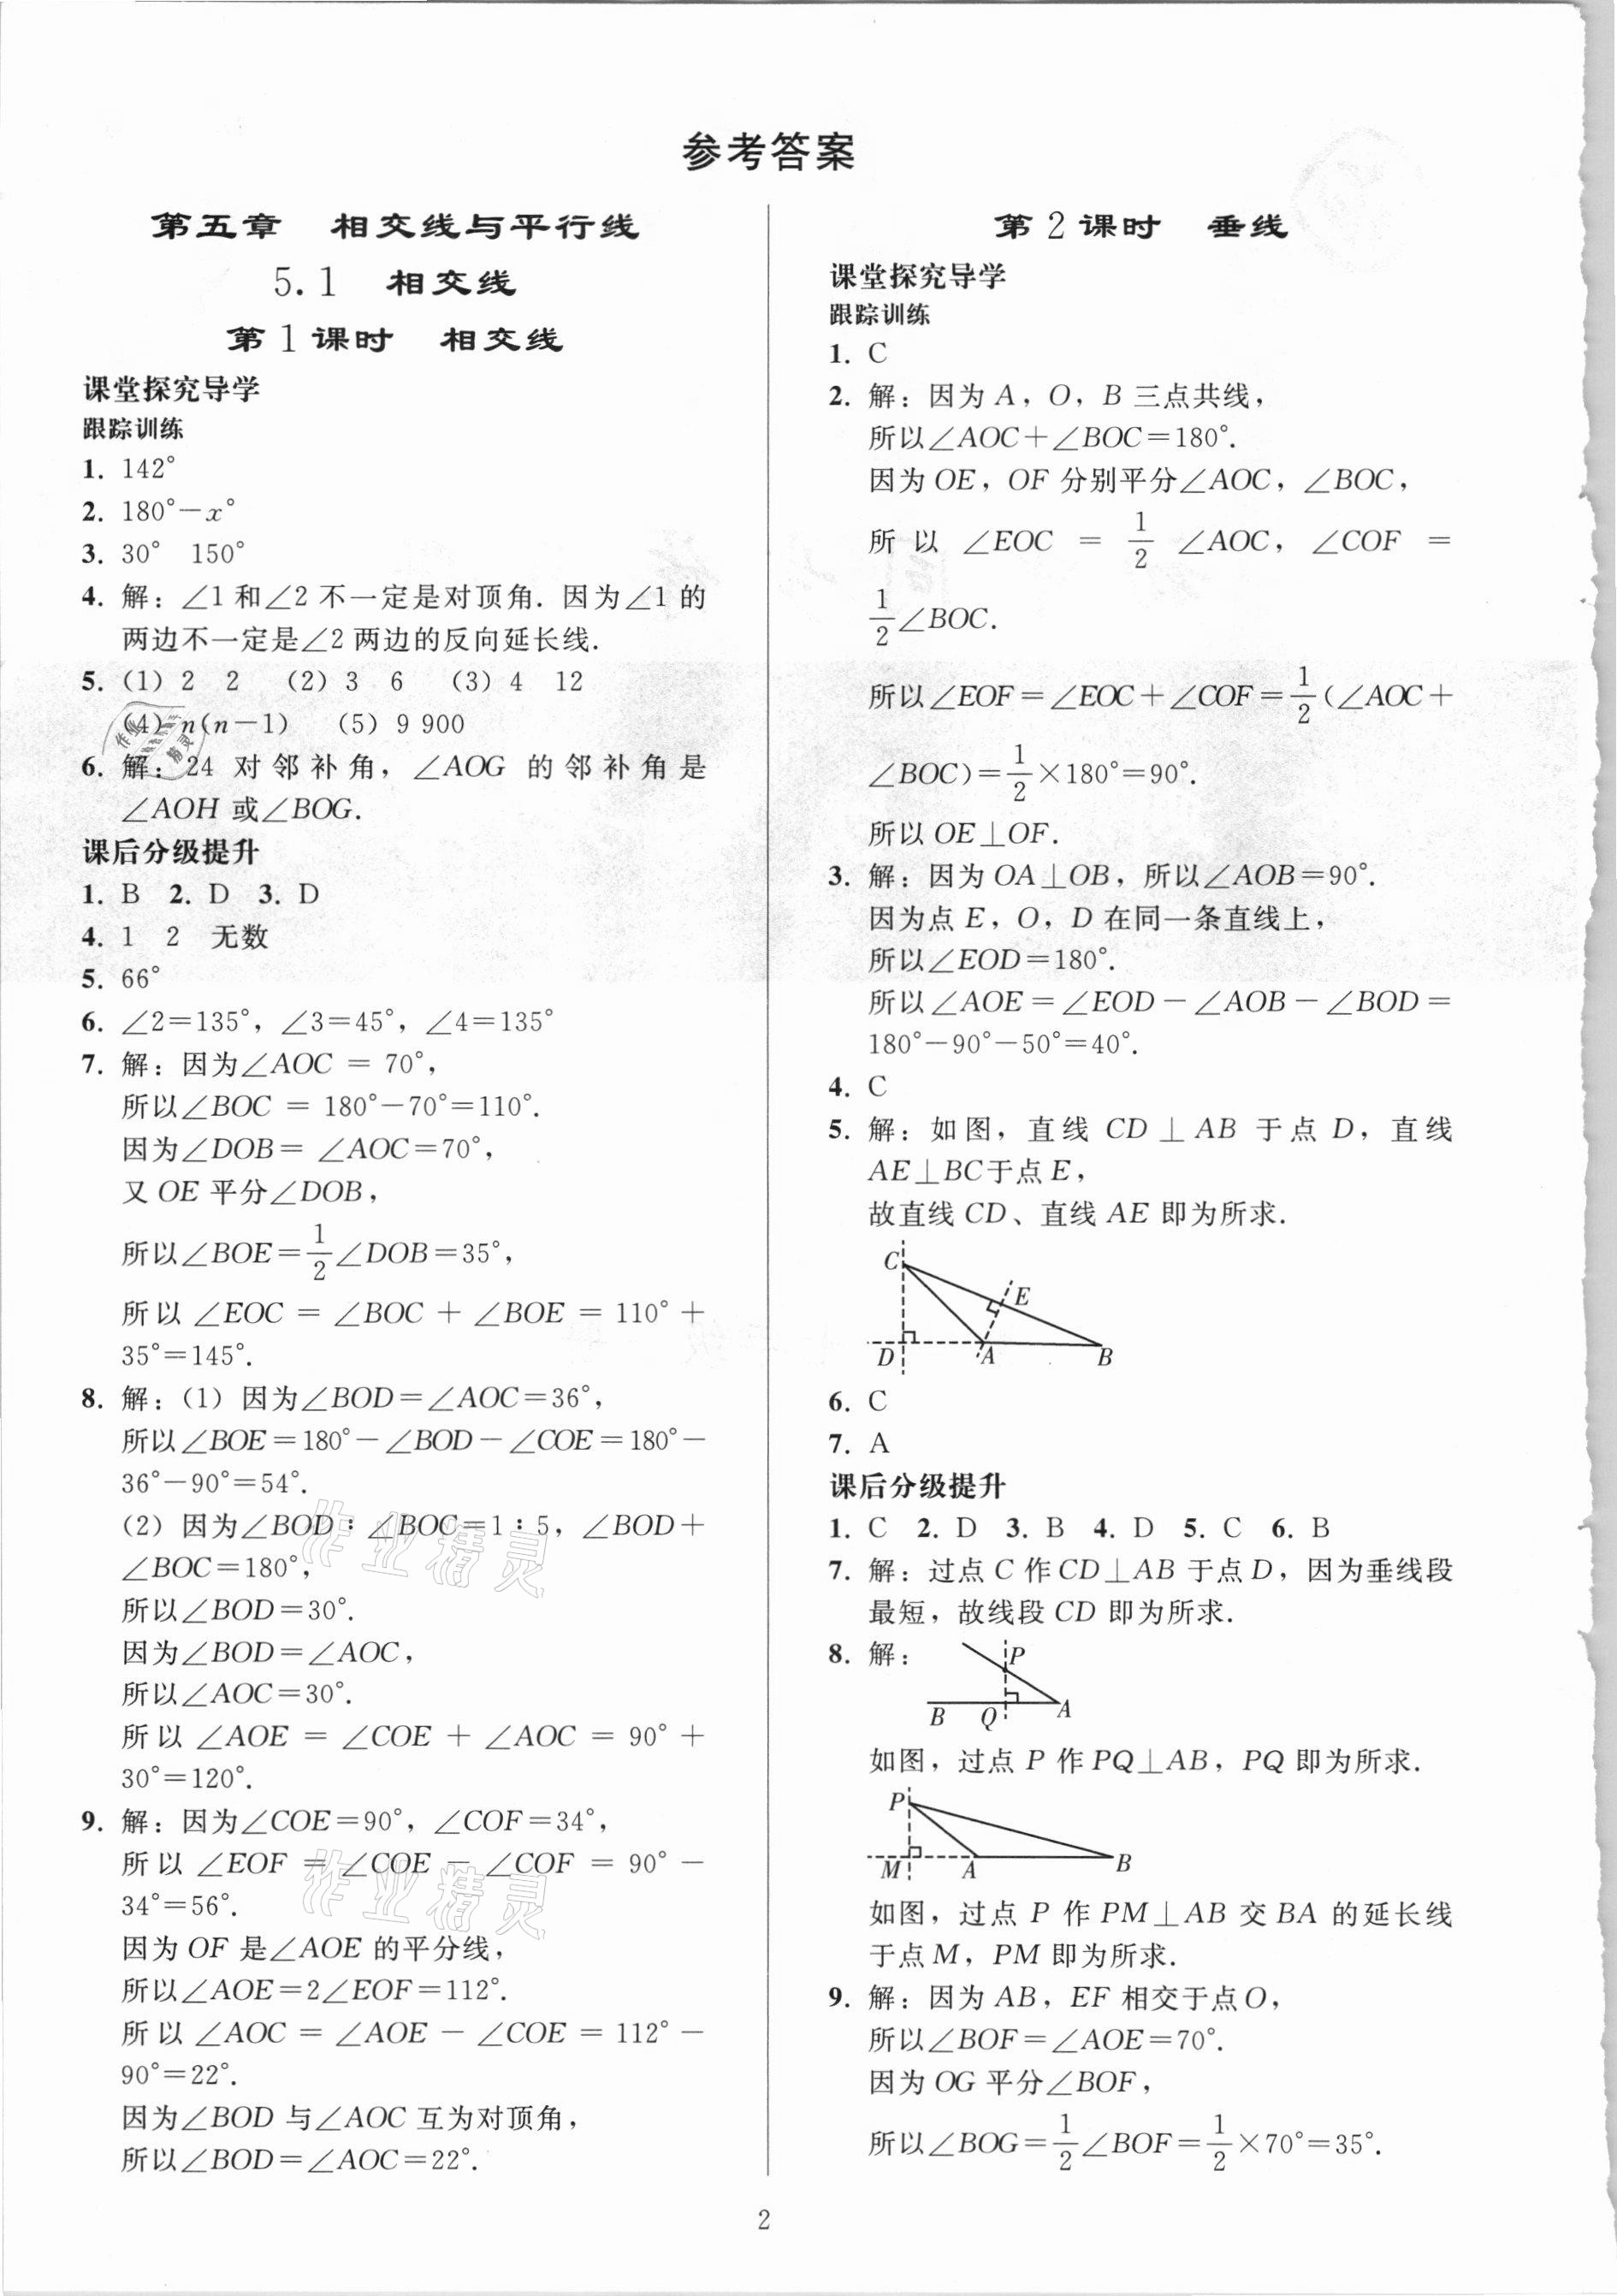 参考答案
第五章 相交线与平行线
5.1 相交线
第1课时 相交线
课堂探究导学
跟踪训练
1. 142°
2. 180°－x°
3. 30° 150°
4. 解：∠1和∠2不一定是对顶角. 因为∠1的
两边不一定是∠2两边的反向延长线.
5. (1) 2 2 (2) 3 6 (3) 4 12
(4) n(n－1) (5) 9 900
6. 解：24 对邻补角，∠AOG 的邻补角是
∠AOH 或∠BOG.
课后分级提升
1. B 2. D 3. D
4. 1 2 无数
5. 66°
6. ∠2＝135°，∠3＝45°，∠4＝135°
7. 解：因为∠AOC ＝ 70°，
所以∠BOC ＝ 180°－70°＝110°.
因为∠DOB＝ ∠AOC＝70°，
又 OE 平分∠DOB，
所以∠BOE＝1/2∠DOB＝35°，
所以 ∠EOC ＝ ∠BOC ＋ ∠BOE ＝ 110°＋
35°＝145°.
8. 解：(1) 因为∠BOD＝∠AOC＝36°，
所以∠BOE＝180°－∠BOD－∠COE＝180°－
36°－90°＝54°.
(2) 因为∠BOD∶∠BOC＝1∶5，∠BOD＋
∠BOC＝180°，
所以∠BOD＝30°.
因为∠BOD＝∠AOC，
所以∠AOC＝30°.
所以 ∠AOE ＝ ∠COE ＋ ∠AOC ＝ 90°＋
30°＝120°.
9. 解：因为∠COE＝90°，∠COF＝34°，
所以 ∠EOF ＝ ∠COE － ∠COF ＝ 90°－
34°＝56°.
因为 OF 是∠AOE 的平分线，
所以∠AOE＝2∠EOF＝112°.
所以 ∠AOC ＝ ∠AOE － ∠COE ＝ 112°－
90°＝22°.
因为∠BOD 与∠AOC 互为对顶角，
所以∠BOD＝∠AOC＝22°.
第2课时 垂线
课堂探究导学
跟踪训练
1. C
2. 解：因为 A，O，B 三点共线，
所以∠AOC＋∠BOC＝180°.
因为 OE，OF 分别平分∠AOC，∠BOC，
所以 ∠EOC ＝ 1/2 ∠AOC，∠COF ＝
1/2∠BOC.
所以∠EOF＝∠EOC＋∠COF＝1/2(∠AOC＋
∠BOC)＝1/2×180°＝90°.
所以 OE⊥OF.
3. 解：因为 OA⊥OB，所以∠AOB＝90°.
因为点 E，O，D 在同一条直线上，
所以∠EOD＝180°.
所以∠AOE＝∠EOD－∠AOB－∠BOD＝
180°－90°－50°＝40°.
4. C
5. 解：如图，直线 CD⊥AB 于点 D，直线
AE⊥BC于点 E，
故直线 CD、直线 AE 即为所求.
C
E
D A B
6. C
7. A
课后分级提升
1. C 2. D 3. B 4. D 5. C 6. B
7. 解：过点 C 作 CD⊥AB 于点 D，因为垂线段
最短，故线段 CD 即为所求.
8. 解：
P
B Q A
如图，过点 P 作 PQ⊥AB，PQ 即为所求.
P
M A B
如图，过点 P 作 PM⊥AB 交 BA 的延长线
于点 M，PM 即为所求.
9. 解：因为 AB，EF 相交于点 O，
所以∠BOF＝∠AOE＝70°.
因为 OG 平分∠BOF，
所以∠BOG＝1/2∠BOF＝1/2×70°＝35°.
2
作业精灵
作业精灵
作业精灵